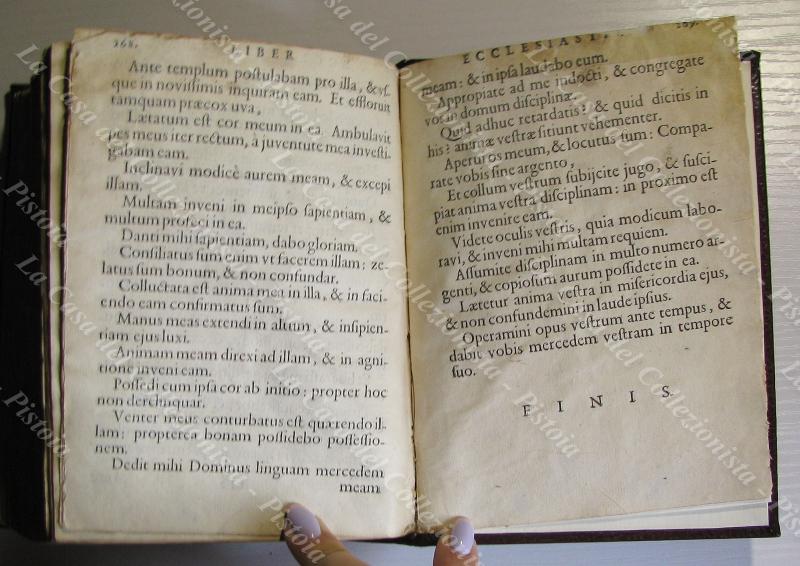 268.
LIBER
Ante templum poſtulabam pro illa, & vſ-
que in noviſſimis inquiram eam. Et effloruit
tamquam præcox uva,
Lætatum eſt cor meum in ea. Ambulavit
pes meus iter rectum, à juventute mea inveſti-
gabam eam.
Inclinavi modicè aurem meam, & excepi
illam.
Multam inveni in meipſo ſapientiam, &
multum profeci in ea.
Danti mihi ſapientiam, dabo gloriam.
Conſiliatus ſum enim vt facerem illam: ze-
latus ſum bonum, & non confundar.
Colluctata eſt anima mea in illa, & in faci-
endo eam confirmatus ſum.
Manus meas extendi in altum, & inſipien-
tiam ejus luxi.
Animam meam direxi ad illam, & in agni-
tione inveni eam.
Poſſedi cum ipſa cor ab initio: propter hoc
non derelinquar.
Venter meus conturbatus eſt quærendo il-
lam: propterea bonam poſſidebo poſſeſſio-
nem.
Dedit mihi Dominus linguam mercedem
meam
ECCLESIAST.
269.
meam: & in ipſa laudabo eum.
Appropiate ad me indocti, & congregate
vos in domum diſciplinæ.
Quid adhuc retardatis? & quid dicitis in
his? animæ veſtræ ſitiunt vehementer.
Aperui os meum, & locutus ſum: Compa-
rate vobis ſine argento,
Et collum veſtrum ſubijcite jugo, & ſuſci-
piat anima veſtra diſciplinam: in proximo eſt
enim invenire eam.
Videte oculis veſtris, quia modicum labo-
ravi, & inveni mihi multam requiem.
Aſſumite diſciplinam in multo numero ar-
genti, & copioſum aurum poſſidete in ea.
Lætetur anima veſtra in miſericordia ejus,
& non confundemini in laude ipſius.
Operamini opus veſtrum ante tempus, &
dabit vobis mercedem veſtram in tempore
ſuo.
FINIS.
La Casa del Collezionista - Pistoia